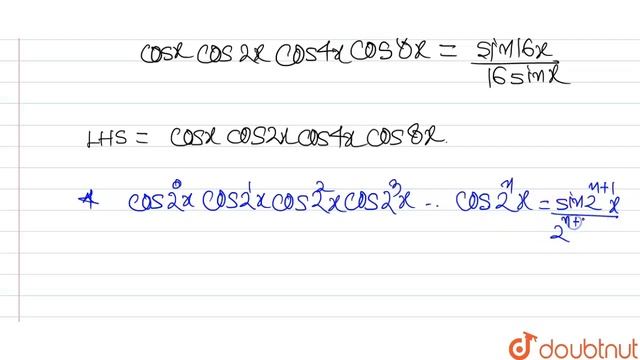 cosx cos2x cos4x cos8x = sin16x / 16sinx
LHS = cosx cos2x cos4x cos8x.
* cos2⁰x cos2¹x cos2²x cos2³x .. cos2ⁿx = sin2ⁿ⁺¹x / 2ⁿ⁺
doubtnut